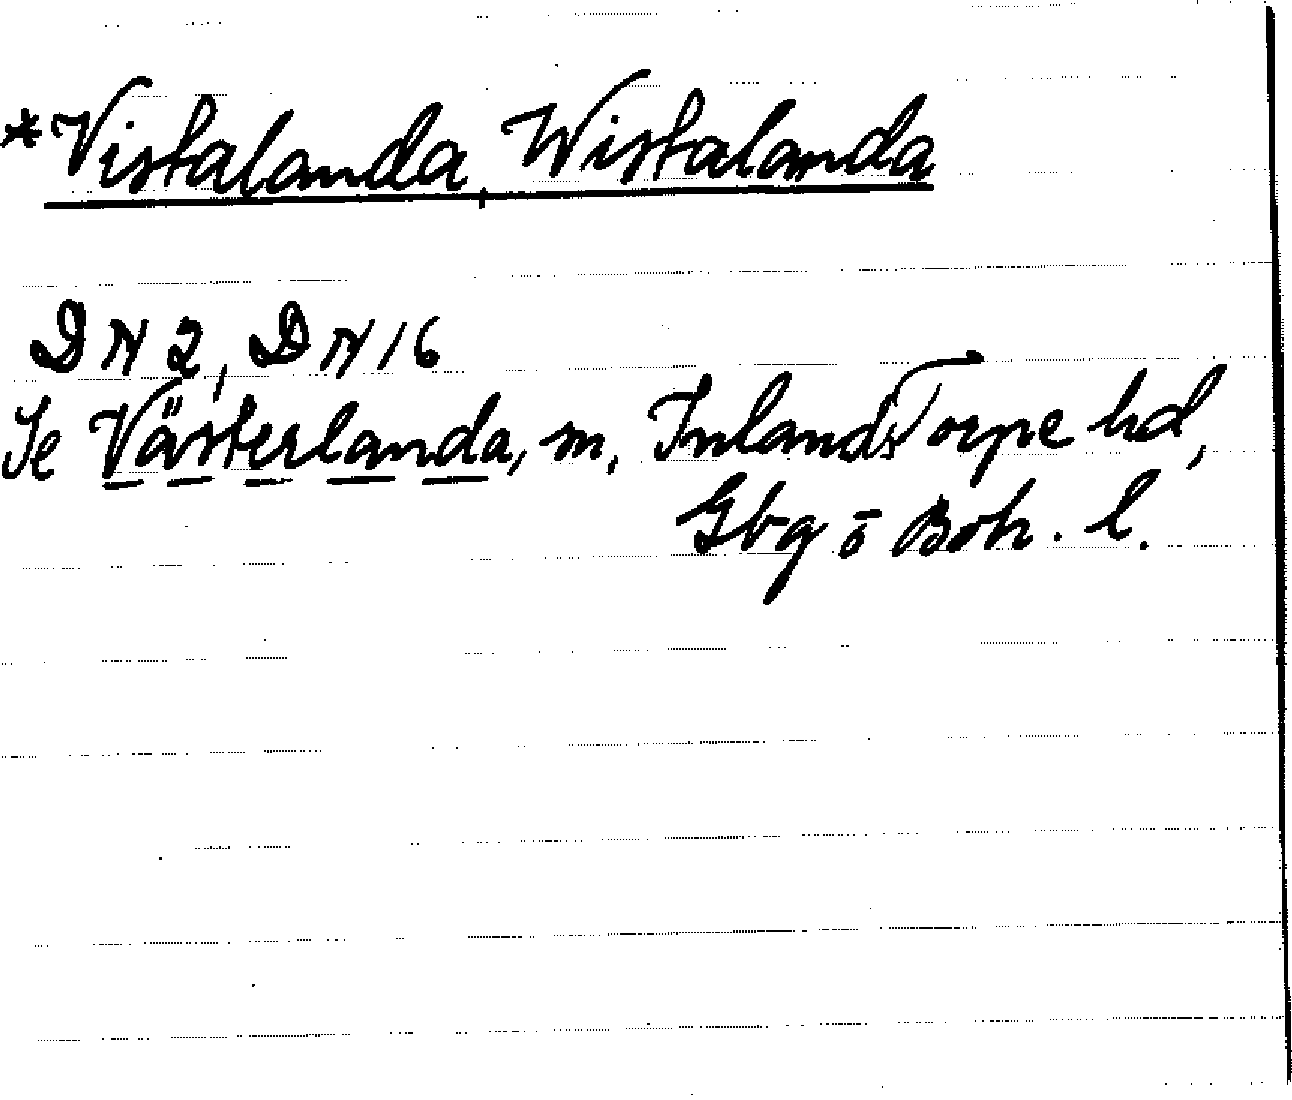 *Vistalanda, Wistalanda
DN 2, DN 16
Se Västerlanda, sn, Inlands Torpe hd,
Gbg o Boh. l.